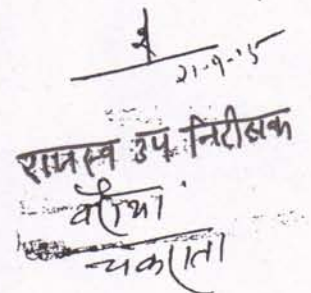 21-9-15
राजस्व उप निरीक्षक
चकराता